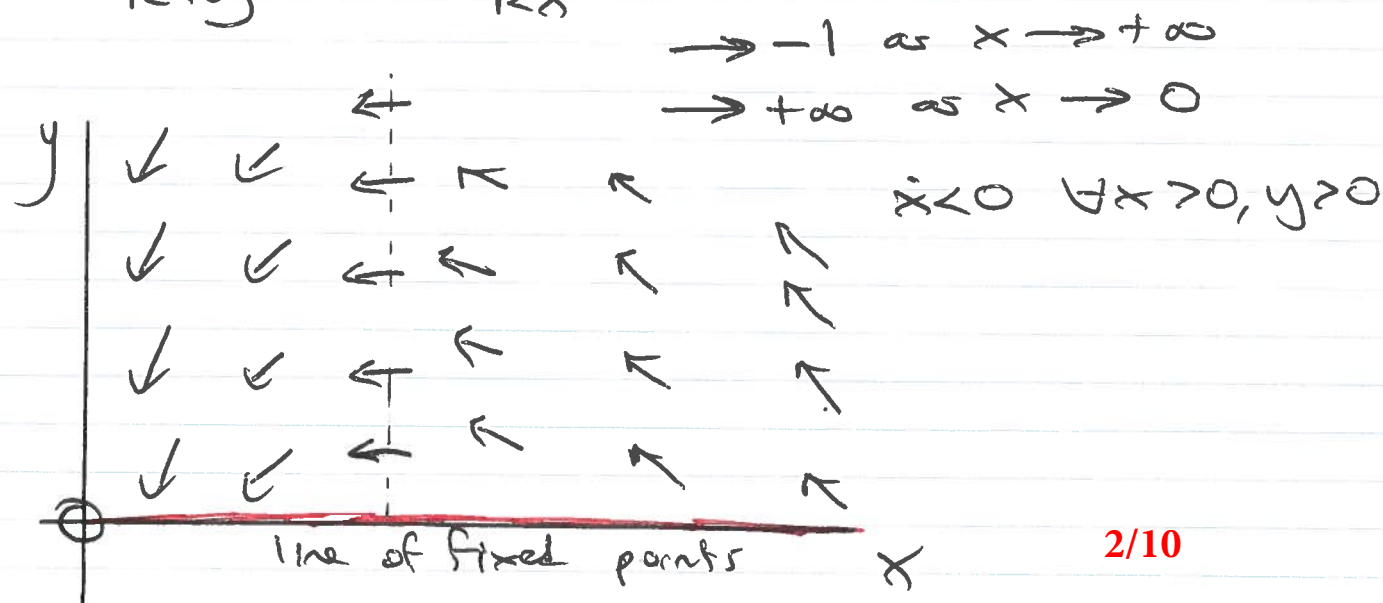 → -1 as x → +∞
→ +∞ as x → 0
y
ẋ<0 ∀x>0, y>0
line of fixed points
x
2/10